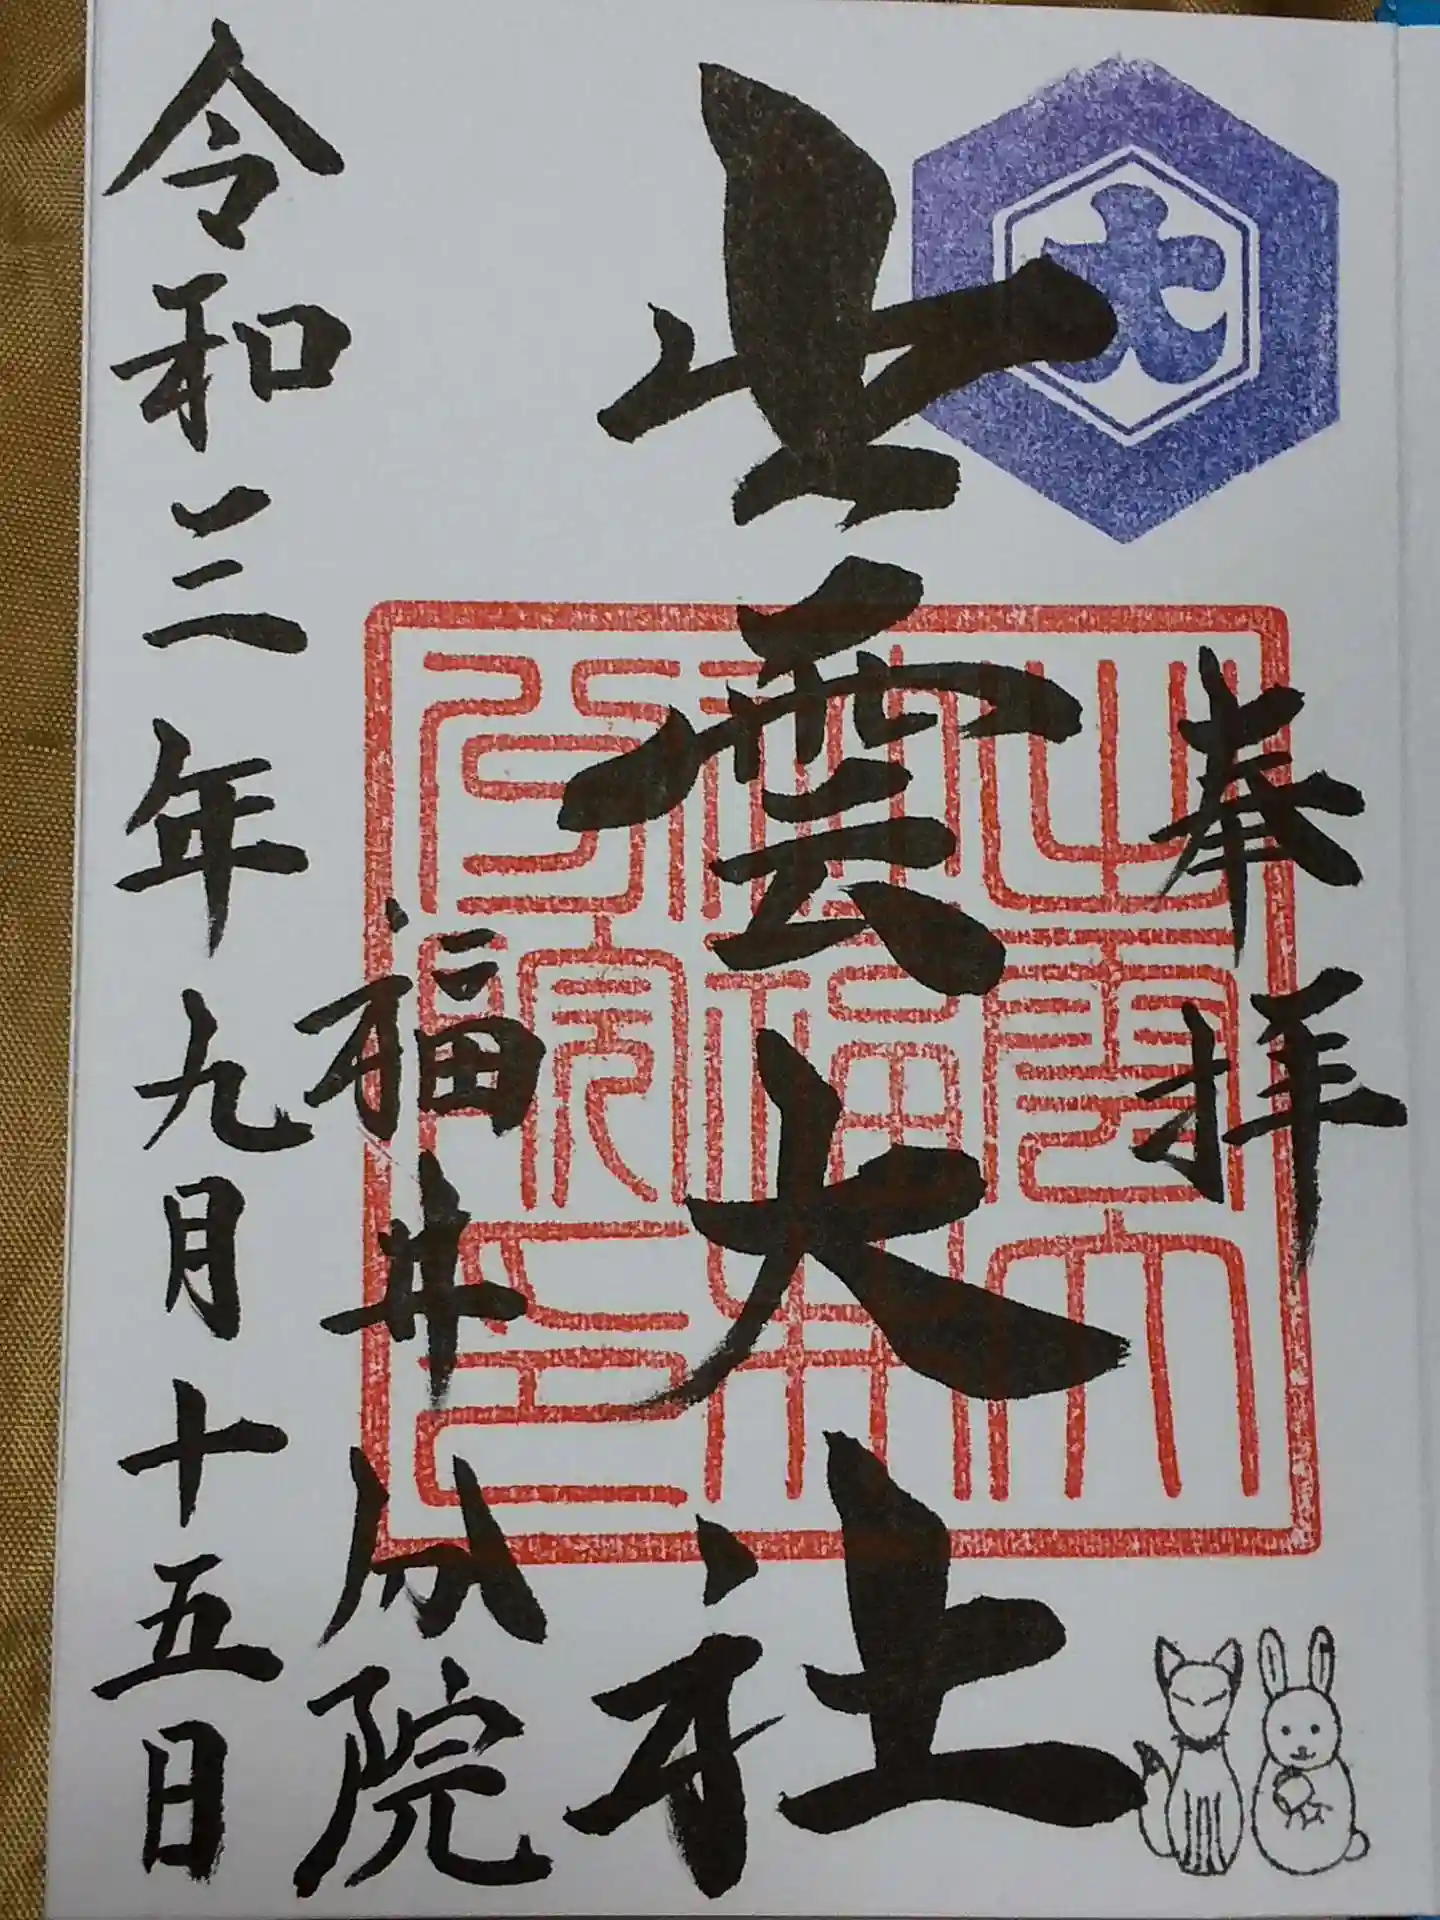 奉拝
出雲大社
福井分院
令和三年九月十五日
大
出雲大
社福井
分院印